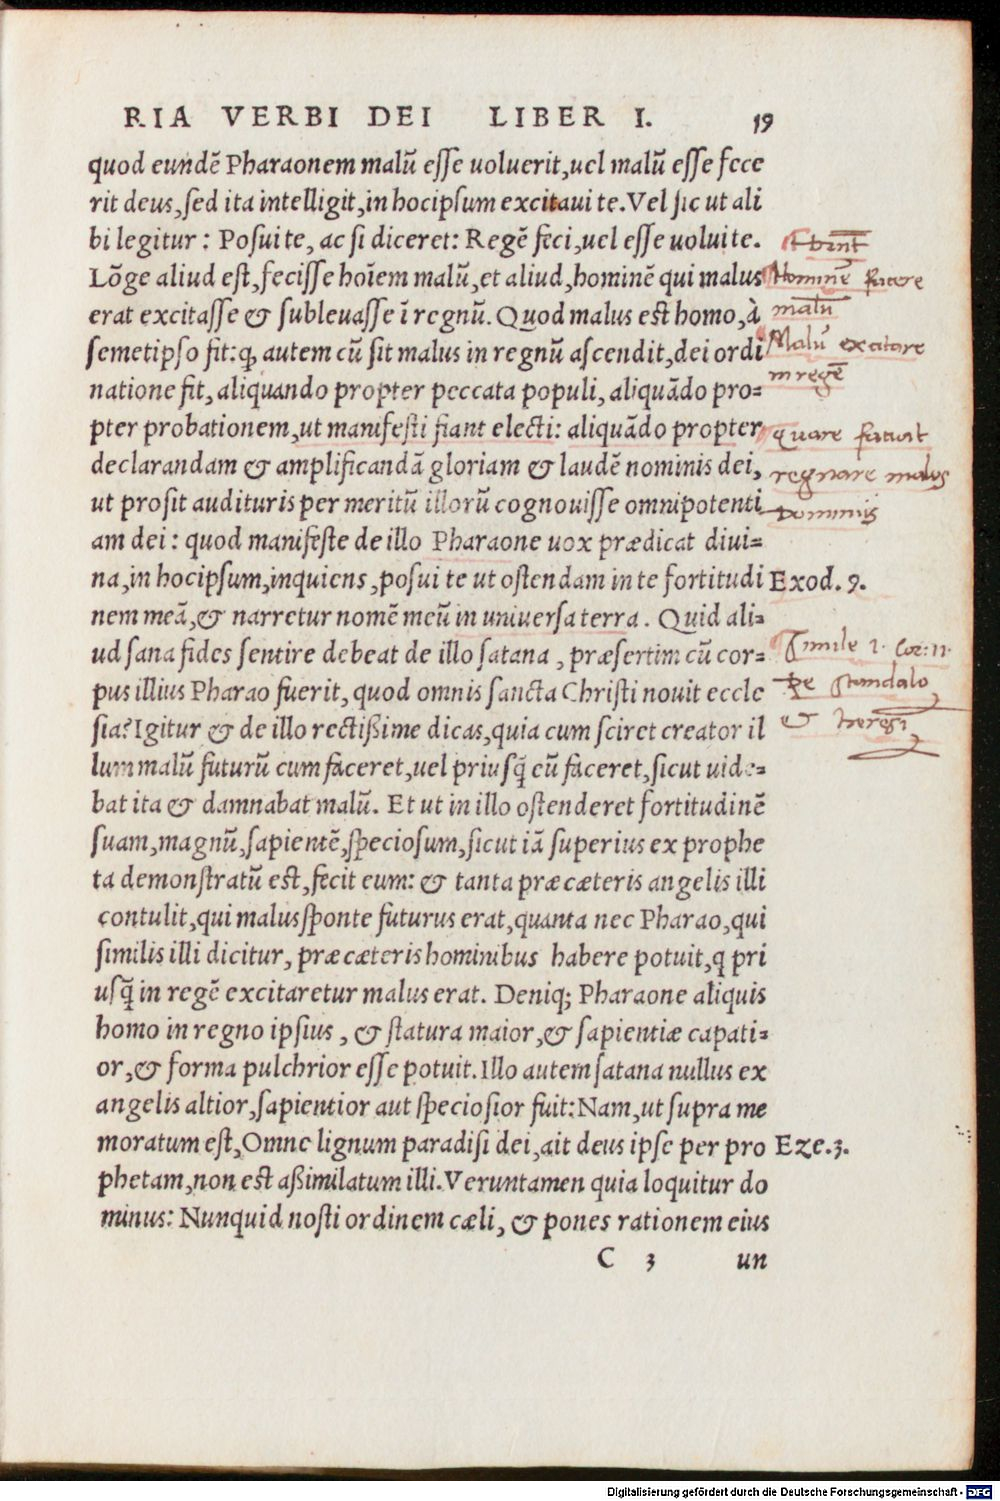 RIA VERBI DEI LIBER I. 19
quod eundē Pharaonem malū esse uoluerit, uel malū esse fece
rit deus, sed ita intelligit, in hoc ipsum excitaui te. Vel sic ut ali
bi legitur: Posui te, ac si diceret: Regē feci, uel esse uolui te.
Lōge aliud est, fecisse hoīem malū, et aliud, hominē qui malus
erat excitasse & subleuasse ī regnū. Quod malus est homo, à
semetipso fit: ꝙ autem cū sit malus in regnū ascendit, dei ordi
natione fit, aliquando propter peccata populi, aliquādo pro=
pter probationem, ut manifesti fiant electi: aliquādo propter
declarandam & amplificandā gloriam & laudē nominis dei,
ut prosit audituris per meritū illorū cognouisse omnipotenti
am dei: quod manifeste de illo Pharaone uox prædicat diui=
na, in hoc ipsum, inquiens, posui te ut ostendam in te fortitudi
nem meā, & narretur nomē meū in uniuersa terra. Quid ali=
ud sana fides sentire debeat de illo satana, præsertim cū cor=
pus illius Pharao fuerit, quod omnis sancta Christi nouit eccle
sia? Igitur & de illo rectißime dicas, quia cum sciret creator il
lum malū futurū cum faceret, uel priusq̄ cū faceret, sicut uide=
bat ita & damnabat malū. Et ut in illo ostenderet fortitudinē
suam, magnū, sapientē, speciosum, sicut iā superius ex prophe
ta demonstratū est, fecit eum: & tanta præ cæteris angelis illi
contulit, qui malus sponte futurus erat, quanta nec Pharao, qui
similis illi dicitur, præ cæteris hominibus habere potuit, q pri
usq̄ in regē excitaretur malus erat. Deniq; Pharaone aliquis
homo in regno ipsius, & statura maior, & sapientiæ capati=
or, & forma pulchrior esse potuit. Illo autem satana nullus ex
angelis altior, sapientior aut speciosior fuit: Nam, ut supra me
moratum est, Omne lignum paradisi dei, ait deus ipse per pro
phetam, non est aßimilatum illi. Veruntamen quia loquitur do
minus: Nunquid nosti ordinem cæli, & pones rationem eius
C 3 un
Hominē facere
malū
Malū excitare
in regē
quare faciat
regnare malos
Dominus
Exod. 9.
Simile 1. Cor: 11.
De scandalo
&
Eze. 3.
Digitalisierung gefördert durch die Deutsche Forschungsgemeinschaft - DFG